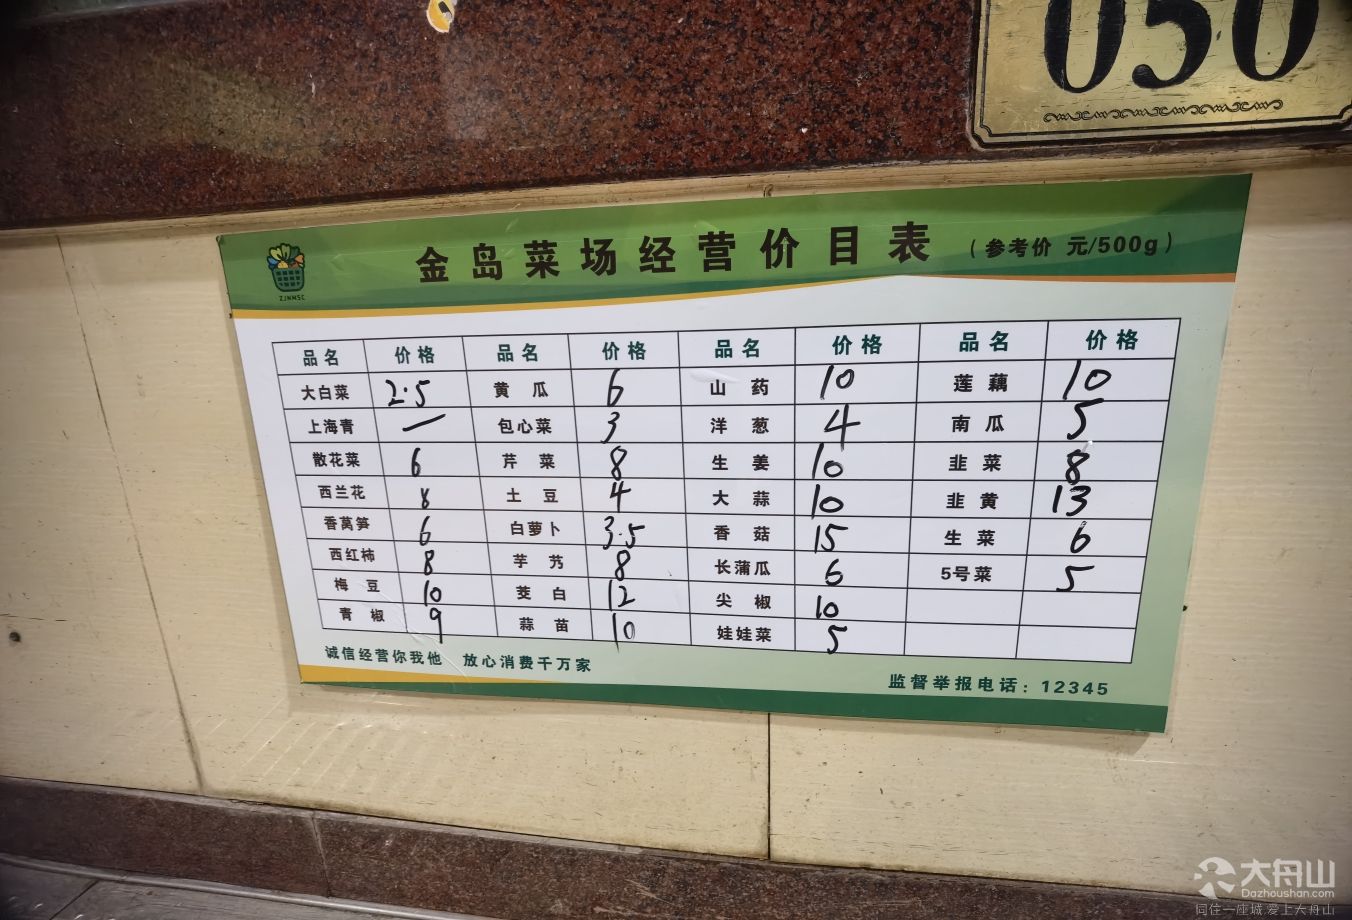 050
金岛菜场经营价目表 (参考价 元/500g)
ZJNMSC
品名 价格 品名 价格 品名 价格 品名 价格
大白菜 2.5 黄瓜 6 山药 10 莲藕 10
上海青 — 包心菜 3 洋葱 4 南瓜 5
散花菜 6 芹菜 8 生姜 10 韭菜 8
西兰花 8 土豆 4 大蒜 10 韭黄 13
香莴笋 6 白萝卜 3.5 香菇 15 生菜 6
西红柿 8 芋艿 8 长蒲瓜 6 5号菜 5
梅豆 10 茭白 12 尖椒 10
青椒 9 蒜苗 10 娃娃菜 5
诚信经营你我他 放心消费千万家
监督举报电话：12345
大舟山
Dazhoushan.com
同住一座城.爱上大舟山